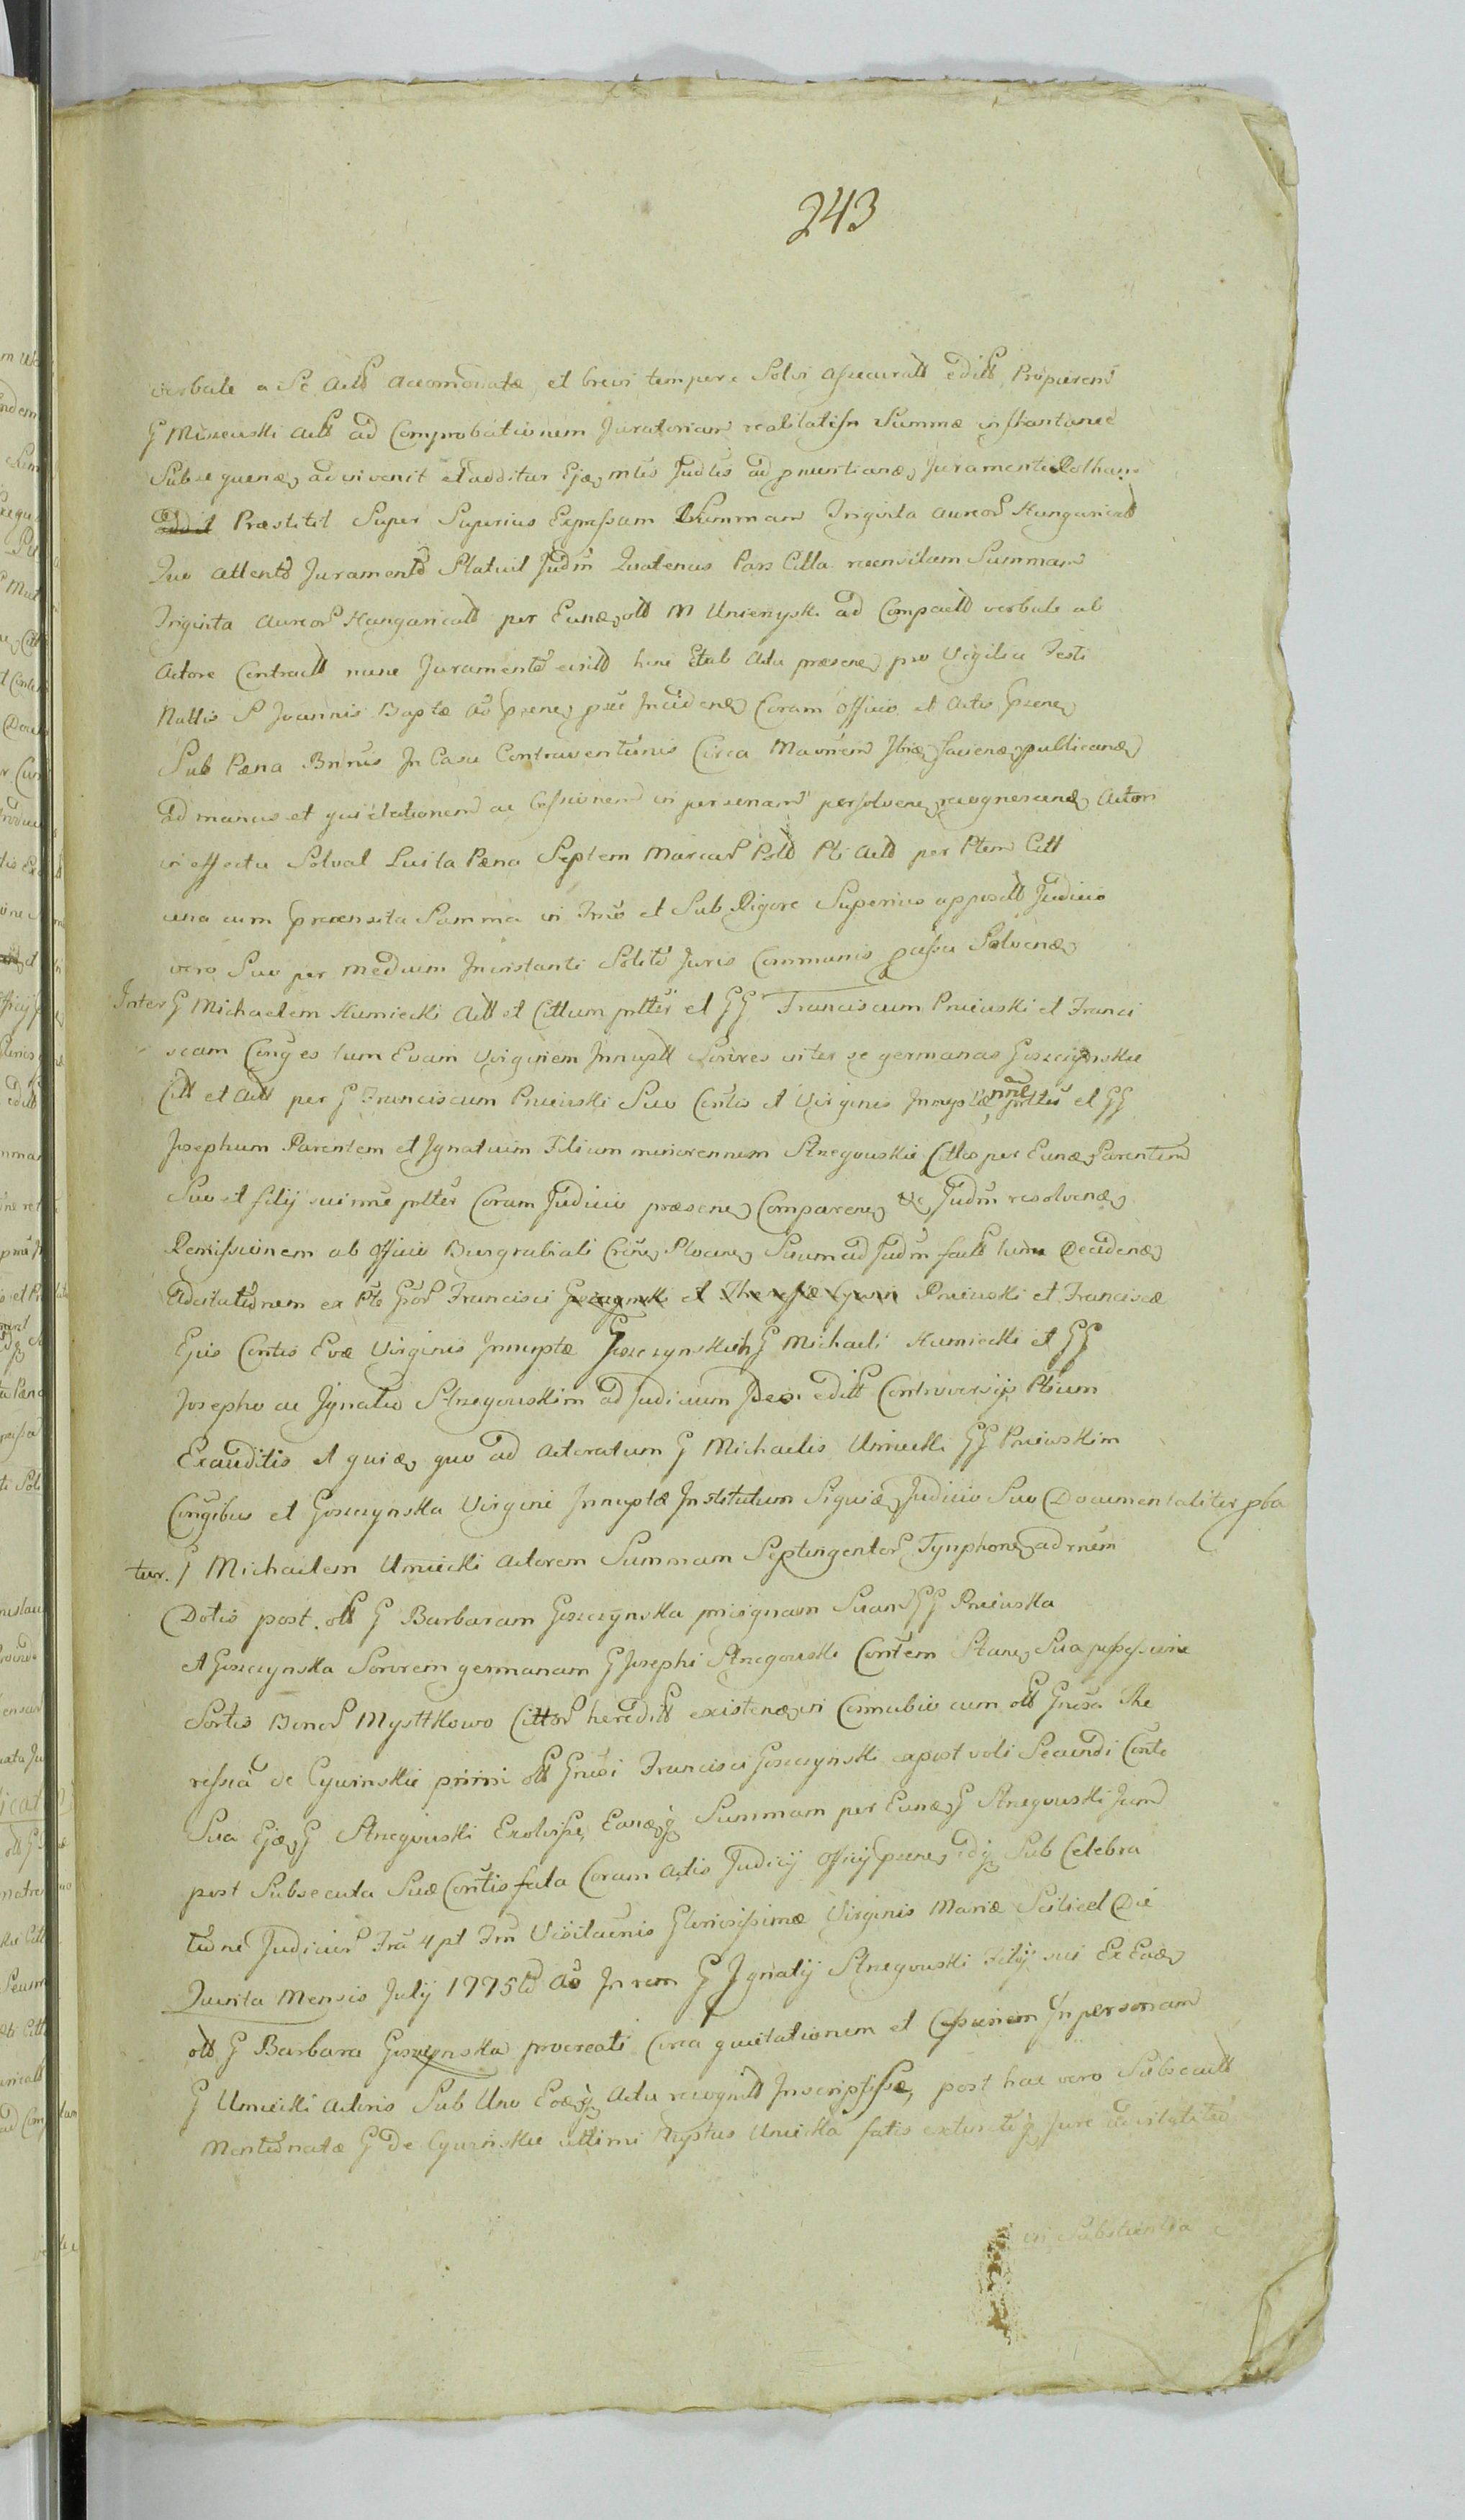 243
verbale a Se Actt accomodatæ, et brevi tempore Solvi assecuratt editt, Properend
G Miszewski Actt ad Comprobationem Juratoriam realitatisn Summæ instantanee
Subsequenæ advivenit et additur Ejæ mtis Judtis ad pnuntianæ Juramenti Rotham
Præstitit Super Superius Expressam Summam Triginta aureor Hungaricalt
Quo attento Juramento Statuit Judm Quatenus Pars Citta recensitam Summam
Triginta aureor Hungaricalt per Eunæ ott M Umienyski ad Compactt verbale ab
Actore Contractt nunc Juramento evictt hinc et ab Actu præsene pro Vigilia Festi
Nattis S Joannis Baptæ ao præne Incidenæ Coram Officio et Actis præne
Sub Pæna Bnnis In Casu Contraventionis Circa facienæ publicanæ
ad manus et quietationem ac Cessionem in personam persolvene recognescenæ Actori
in effectu Solvat Luita Pæna Septem Marcar Pold Pti Actt per Ptem Citt
una cum precensita Summa in Tmo et Sub Rigore Superius appositt Judicio
vero Suo per medium In instanti Solito Juris Communis passu Solvenæ
Inter G Michaelem Humiecki Actt et Cittum prtter et GG Franciscum Pniewski et Franci
scam Conges tum Evam Virginem Innuptt Sorores inter se germanas Goszczynskie
Citt et Actt per G Franciscum Pniewski Suo Contis et Virginis Innuptæ nne prtter et GG
Josephum Parentem et Ignatium Filium minorennem Strzegowskie Cittos per Eunæ Parentem
Suo et filij sui nne prtter Coram Judicio præsene Comparene &c Judm resolvenæ
Remissionem ab Officio Burgrabiali Crine Plocene Suum ad Judm factt Decidenæ
Adcitationem ex Pte Gror Francisci et Theressæ Cywin Pniewski et Franciscæ
Ejus Contis Evæ Virginis Innuptæ Goszczynskich G Michaeli Humiecki et GG
Josepho ac Ignatio Strzegowskim ad Judicium editt Controversijs Ptium
Exauditis et quiæ quo ad Actoratum G Michaelis Umiecki GG Pniewskim
Congibus et Goszczynska Virgini Innuptæ Institutum Siquiæ Judicio Suo Documentaliter pba
tur. G Michaelem Umiecki Actorem Summam Septingentor Tynphone adrnem
Dotis post ott G Barbaram Goszczynska privignam Suam GG Pniewska
et Goszczynska Sororem germanam G Josephi Strzegowski Contem Stane Sua possessione
Sortis Bonor Mysttkowo Cittor hereditt existenæ in Connubio cum ott Gnosa The
ressia de Cywinskie primi ott Gnosi Francisci Goszczynski expost voti Secundi Conte
Sua Ejæ G Strzegowski Exolvisse, Eanæq Summam per Eunæ G Strzegowski Jam
post Subsecuta Suæ Contis fata Coram Actis Judicij Officij præne idq Sub Celebra
tione Judicior Fra 4 pt Fm Visitaonis Gloriosissimæ Virginis Mariæ Scilicet Die
Quinta Mensis Julij 1775to Ao In rem G Ignatij Strzegowski Filij sui Ex Eaæ
ott G Barbara Goszczynska procreati Circa quietationem et Cessionem In personam
G Umiecki Actoris Sub Uno Eodæq Actu recognitt Inscripsisse, post hac vero Subsecutt
Mentionatæ G de Cywinskie ultimi Nuptus Umiecka fatis extinctiq Jure advitalitio
in Substantia